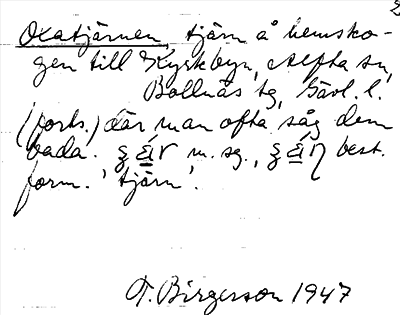 2
Oxatjärnen, tjärn å hemsko-
gen till Kyrkbyn, Alfta sn,
Bollnäs tg, Gävl. l.
(forts.) där man ofta såg dem
bada. m. sg., best.
form. 'tjärn'.
T. Birgerson 1947